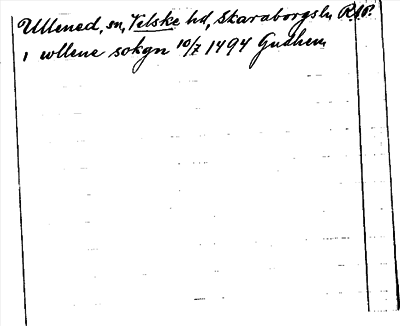 Ullened, sn, Velske hd, Skaraborgsl.,
i wllene sokgn 10/7 1494 Gudhem